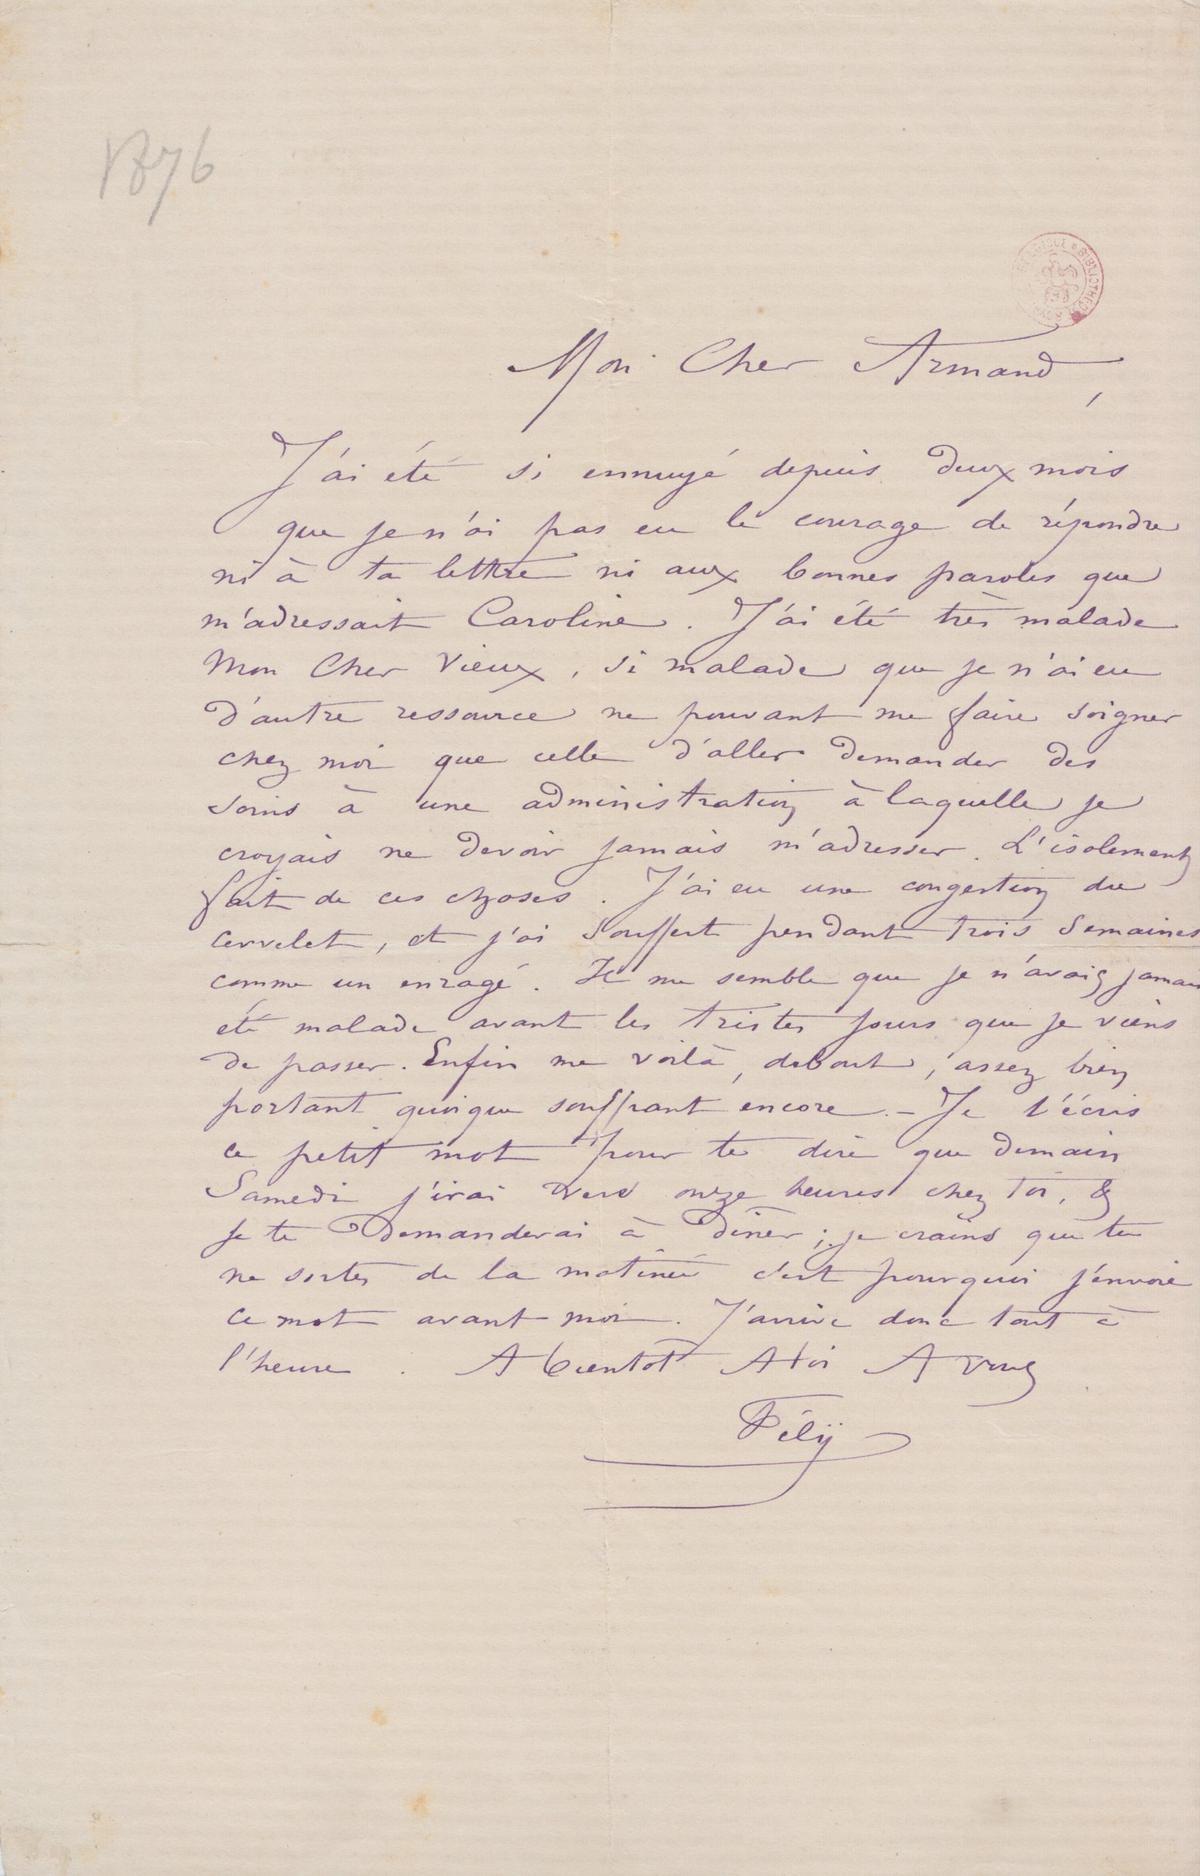 1876
Mon Cher Armand,
J'ai été si ennuyé depuis deux mois
que je n'ai pas eu le courage de répondre
ni à ta lettre ni aux bonnes paroles que
m'adressait Caroline. J'ai été très malade
Mon Cher Vieux, si malade que je n'ai eu
d'autre ressource ne pouvant me faire soigner
chez moi que celle d'aller demander des
soins à une administration à laquelle je
croyais ne devoir jamais m'adresser. L'isolement
fait de ces choses. J'ai eu une congestion du
cervelet, et j'ai souffert pendant trois semaines
comme un enragé. Il me semble que je n'avais jamais
été malade avant les tristes jours que je viens
de passer. Enfin me voilà, debout, assez bien
portant quoique souffrant encore. – Je t'écris
ce petit mot pour te dire que demain
Samedi j'irai vers onze heures chez toi, &
je te demanderai à dîner; je crains que tu
ne sortes de la matinée c'est pourquoi j'envoie
ce mot avant moi. J'arrive donc tout à
l'heure. A bientôt A toi A vous
Fély